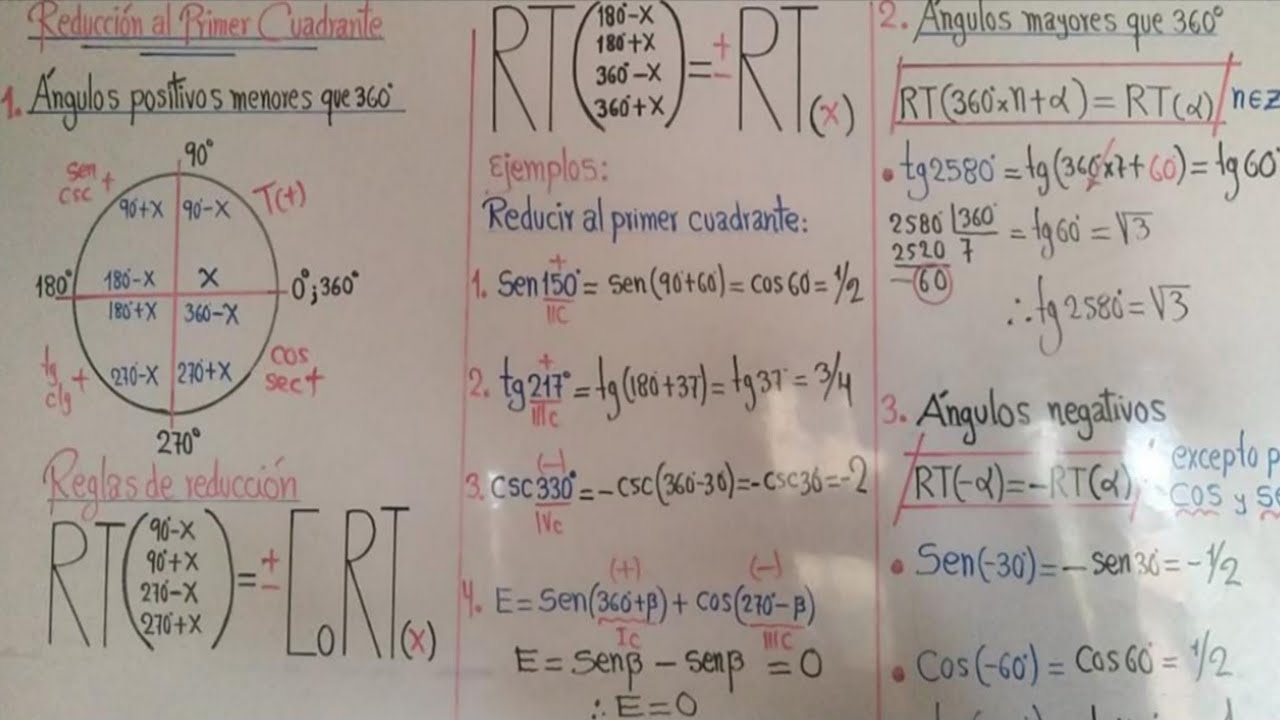 Reducción al Primer Cuadrante
1. Ángulos positivos menores que 360°
90°
sen
csc +
T(+)
90+X 90-X
180° 180-X X 0°; 360°
180+X 360-X
tg
ctg +
270-X 270+X
cos
sec+
270°
Reglas de reducción
RT(90-X
90+X
270-X
270+X) = ± CoRT(x)
RT(180-X
180+X
360-X
360+X) = ± RT(x)
Ejemplos:
Reducir al primer cuadrante:
+
1. Sen150° = sen(90+60) = cos60 = 1/2
IIC
+
2. tg217° = tg(180+37) = tg37 = 3/4
IIIC
(-)
3. csc330° = -csc(360-30) = -csc30 = -2
IVC
(+) (-)
4. E = Sen(360+β) + cos(270-β)
IC IIIC
E = senβ - senβ = 0
∴ E = 0
2. Ángulos mayores que 360°
RT(360×n+α) = RT(α) n∈Z
• tg2580° = tg(360×7+60) = tg60
2580 |360
2520 7
-60
= tg60 = √3
∴ tg2580 = √3
3. Ángulos negativos
RT(-α) = -RT(α)
excepto
cos y
• Sen(-30) = - sen30 = -1/2
• Cos(-60) = Cos60 = 1/2